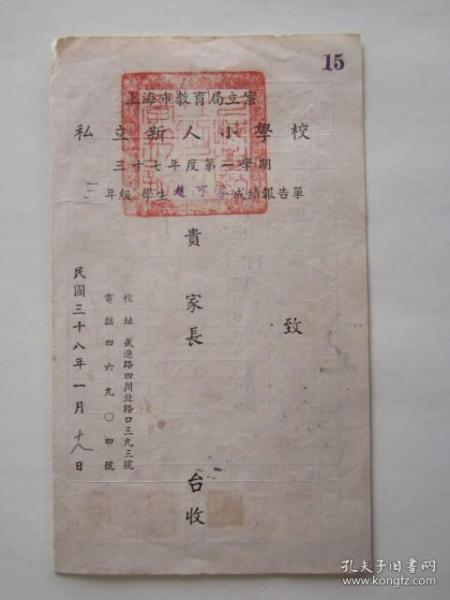 15
上海市教育局立案
私立新人小學校
三十七年度第一學期
年級 學生 趙可 成績報告單
致
貴家長
台收
校址 武進路四川北路口三九三號
電話 四六九〇四號
民國三十八年一月十八日
孔夫子旧书网
www.kongfz.com